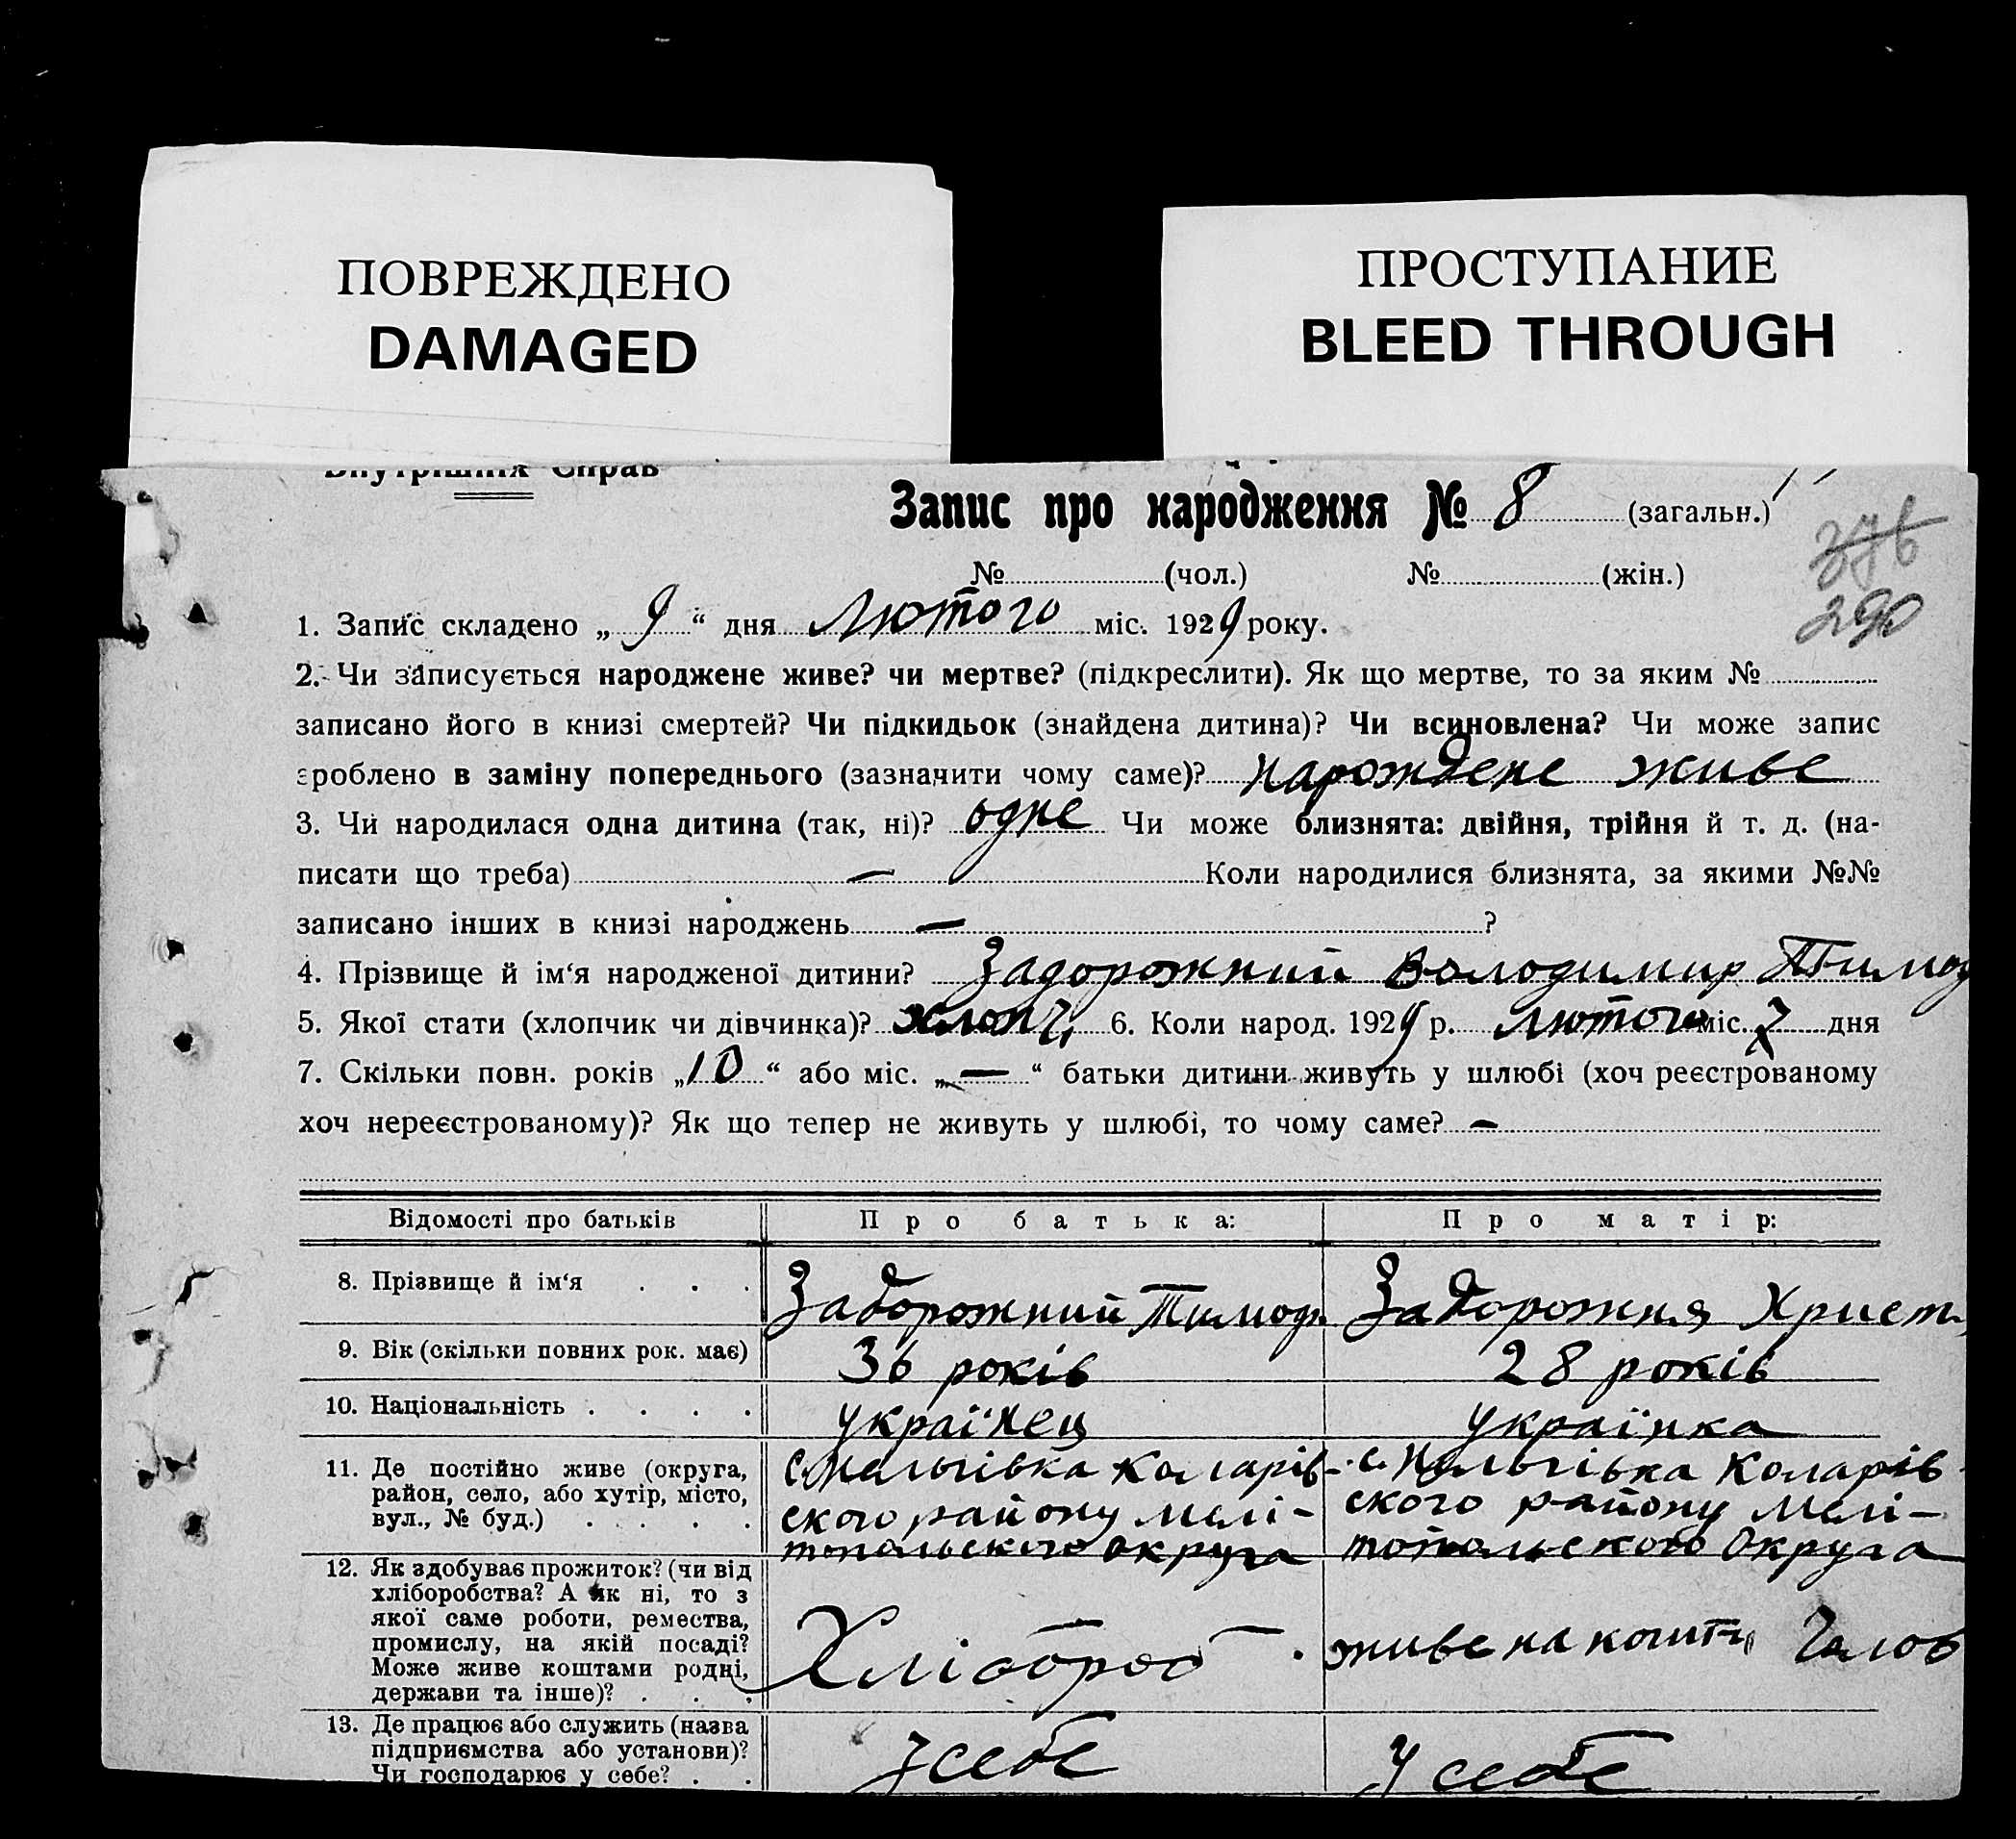 ПОВРЕЖДЕНО
DAMAGED
ПРОСТУПАНИЕ
BLEED THROUGH
Внутрішніх Справ
Запис про народження № 8 (загальн.)
376
290
№ (чол.) № (жін.)
1. Запис складено „ 9 “ дня Лютого міс. 1929 року.
2. Чи записується народжене живе? чи мертве? (підкреслити). Як що мертве, то за яким №
записано його в книзі смертей? Чи підкидьок (знайдена дитина)? Чи всиновлена? Чи може запис
зроблено в заміну попереднього (зазначити чому саме)? нарождене живе
3. Чи народилася одна дитина (так, ні)? одне Чи може близнята: двійня, трійня й т. д. (на-
писати що треба) — Коли народилися близнята, за якими №№
записано інших в книзі народжень — ?
4. Прізвище й ім‘я народженої дитини? Задорожний Володимир Тимоф
5. Якої стати (хлопчик чи дівчинка)? хлопч. 6. Коли народ. 1929 р. лютого міс. 7 дня
7. Скільки повн. років „ 10 “ або міс. „ — “ батьки дитини живуть у шлюбі (хоч реєстрованому
хоч нереєстрованому)? Як що тепер не живуть у шлюбі, то чому саме? —
Відомості про батьків Про батька: Про матір:
8. Прізвище й ім‘я . . . Задорожний Тимоф. Задорожня Христ
9. Вік (скільки повних рок. має) 36 років 28 років
10. Національність . . . . українец українка
11. Де постійно живе (округа,
район, село, або хутір, місто,
вул., № буд.) . . . .
ского району Мелі-
топольского округа
Коларів
ского району Мелі-
топольского округа
12. Як здобуває прожиток? (чи від
хліборобства? А як ні, то з
якої саме роботи, ремества,
промислу, на якій посаді?
Може живе коштами родні,
держави та інше)? . . .
Хлібороб
живе на кошти чалов
13. Де працює або служить (назва
підприємства або установи)?
Чи господарює у себе? . .
у себе
у себе